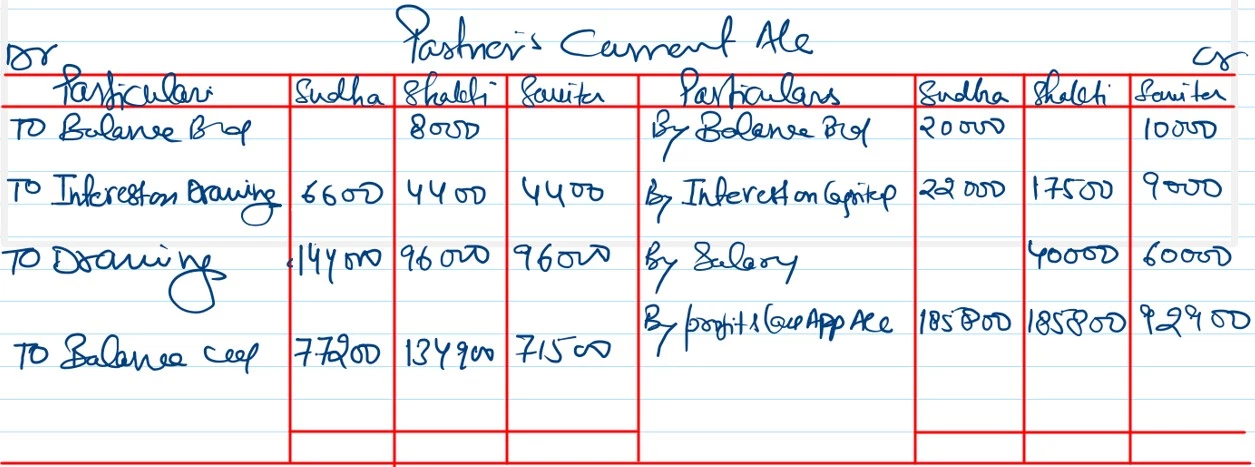 Partner's Current A/c
Dr Cr
Particulars Sudha Shakti Savita Particulars Sudha Shakti Savita
TO Balance B/d 8000 By Balance B/d 20000 10000
TO Interest on Drawing 6600 4400 4400 By Interest on Capital 22000 17500 9000
TO Drawing 144000 96000 96000 By Salary 40000 60000
By profit & Loss App A/c 185800 185800 92900
TO Balance c/d 77200 134900 71500